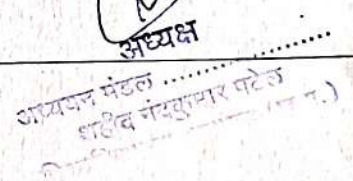 अध्यक्ष
अध्ययन मंडल ....................
शहीद नंदकुमार पटेल